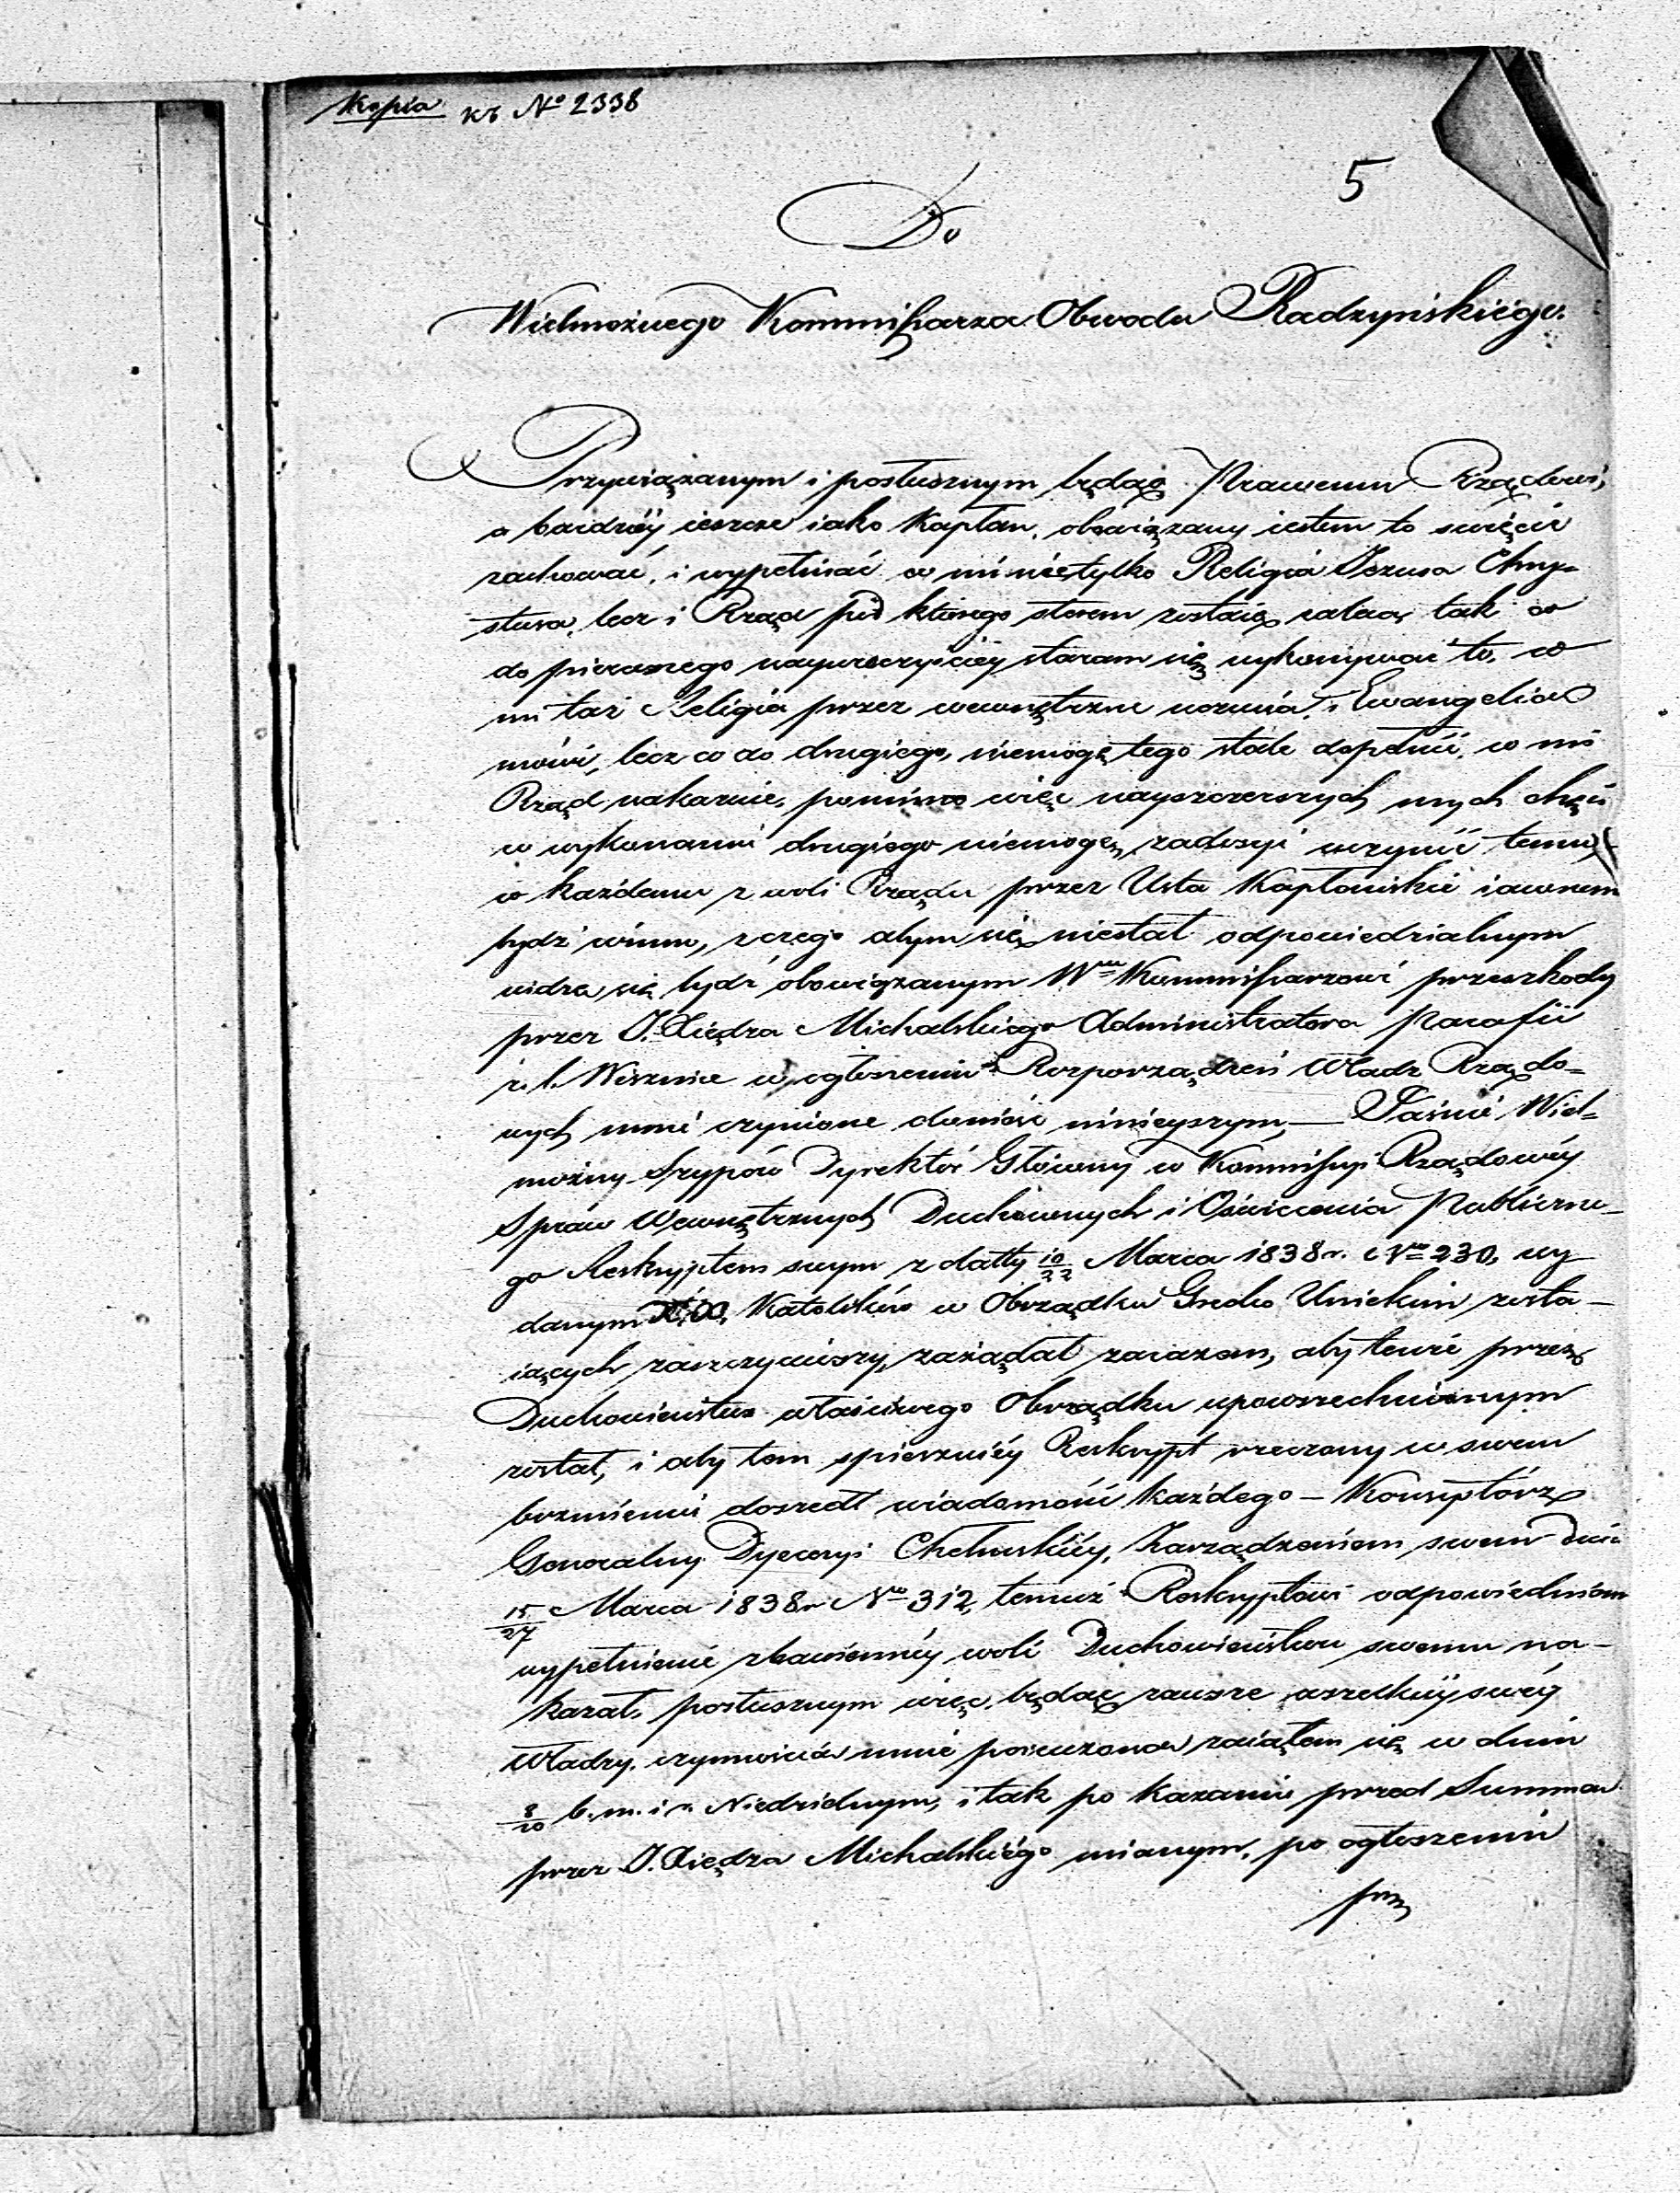 Kopia къ № 2338
5
Do
Wielmożnego Kommissarza Obwodu Radzyńskiégo.
Przywiązanym i posłusznym będąc Prawemu Rządowi,
a bardziéj ieszcze iako Kapłan, obowiązany iestem to święcie
zachować, i wypełniać co mi nietylko Religia Jezusa Chry-
stusa, lecz i Rząd pod którego sterem zostaię zaleca, tak co
do pierwszego nayuroczyściéy staram się wykonywać to, co
mi taż Religia przez wewnętrzne uczucia, i Ewangelia
mówi, lecz co do drugiego, niemogę tego stale dopełnić, co mi
Rząd nakazuie, pomimo więc nayszczerszych mych chęci
w wykonaniu drugiego niemogę zadosyć uczynić temu,
co każdemu z woli Rządu przez Usta Kapłańskie iawnem
bydź winno, z czego abym się niestał odpowiedzialnym
widzę się bydź obowiązanym Wmu Kommissarzowi przeszkody
przez J. Xiędza Michalskiego Administratora Parafii
r. l. Wisznice w ogłoszeniu Rozporządzeń Władz Rządo=
wych mnie czynione donieść ninieyszym, — Jaśnie Wiel=
możny Szypow Dyrektor Główny w Kommissyi Rządowéy
Spraw Wewnętrznych Duchownych i Oświecenia Publiczne-
go Reskryptem swym z datty 10/22 Marca 1838 r. Nro 230, wy
danym Katolików w Obrządku Greko Unickim zosta-
iących zaszczyciwszy, zażądał zarazem, aby tenże przez
Duchowieństwo właściwego Obrządku upowszechnionym
został, i aby tem spieszniéy Reskrypt rzeczony w swem
brzmieniu doszedł wiadomości każdego — Konsystorz
Generalny Dyecezyi Chełmskiéy, Zarządzeniem swem dnia
15/27 Marca 1838 r. Nro 312, temuż Reskryptowi odpowiedniem
wypełnienie zbawiennéy woli Duchowieństwu swemu na-
kazał, posłusznym więc będąc zawsze wszelkiéy swéy
Władzy, czynnością mnie poruczoną zaiąłem się w dniu
8/20 b. m. i r. Niedzielnym, i tak po kazaniu przed Summą
przez J. Xiędza Michalskiégo mianym, po ogłoszeniu
prz